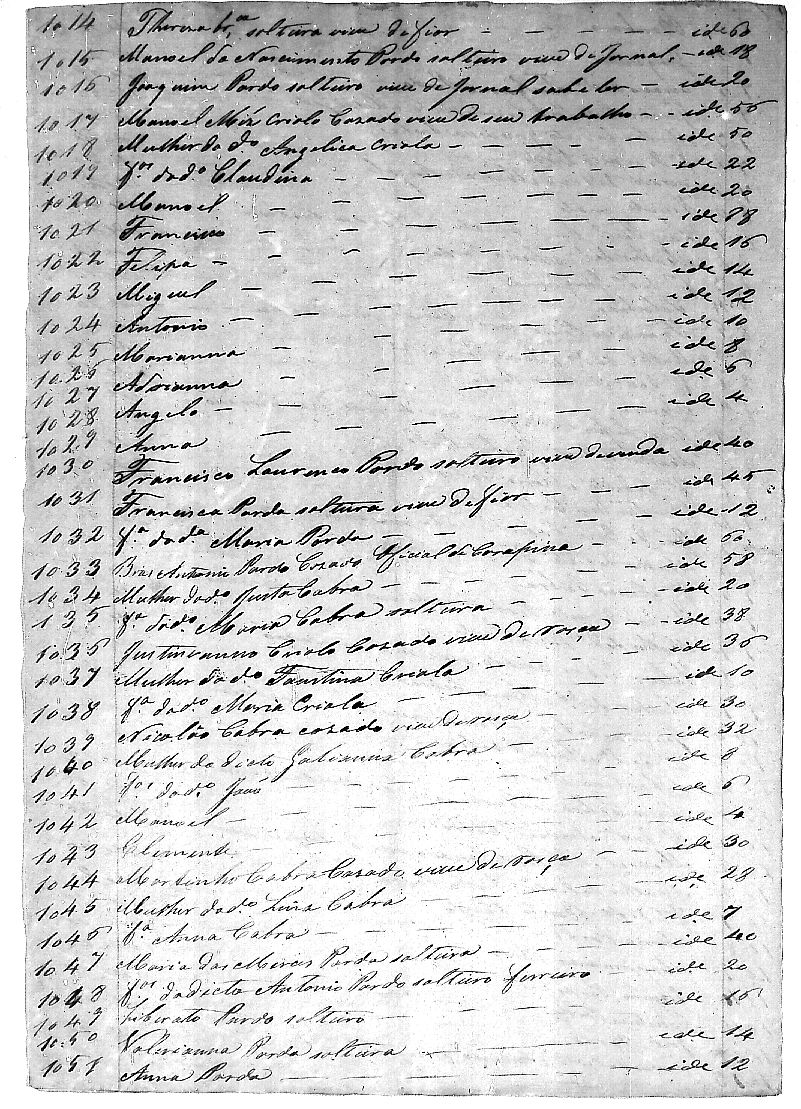 1014 Thereza br.ca soltura vive de fiar — ide 60
1015 Manoel do Nascimento Pardo solteiro vive de Jornal — ide 18
1016 Joaquim Pardo solteiro vive de Jornal sabe ler — ide 20
1017 Manoel Miz Criolo Cazado vive de seu trabalho — ide 56
1018 Mulher do d.o Angelica Criola — ide 50
1019 f.os do d.o Claudina — ide 22
1020 Manoel — ide 20
1021 Francisco — ide 18
1022 Felipa — ide 16
1023 Miguel — ide 14
1024 Antonio — ide 12
1025 Marianna — ide 10
1026 Adrianna — ide 8
1027 Angelo — ide 6
1028 Anna — ide 4
1029
1030 Francisco Lourenco Pardo solteiro vive de venda ide 40
1031 Francisca Parda soltura vive de fiar — ide 45
1032 f.a da d.a Maria Parda — ide 12
1033 Bras Antonio Pardo Cozado Oficial de Carapina — ide 60
1034 Mulher do d.o Justa Cabra — ide 58
135 f.a do d.o Maria Cabra soltura — ide 20
1036 Justinianno Criolo Cazado vive de roça — ide 38
1037 Mulher do d.o Faustina Criola — ide 36
1038 f.a do d.o Maria Criola — ide 10
1039 Nicolão Cabra cozado vive de roça — ide 30
1040 Mulher do dicto Julianna Cabra — ide 32
1041 f.os do d.o João — ide 8
1042 Manoel — ide 6
1043 Clemente — ide 4
1044 Martinho Cabra Cazado vive de roça — ide 30
1045 Mulher do d.o Luiza Cabra — ide 28
1046 f.a Anna Cabra — ide 7
1047 Maria das Merces Parda soltura — ide 40
1048 f.os da dicta Antonio Pardo solturo ferreiro — ide 20
1049 Liberato Pardo solteiro — ide 16
1050 Valerianna Parda soltura — ide 14
1051 Anna Parda — ide 12